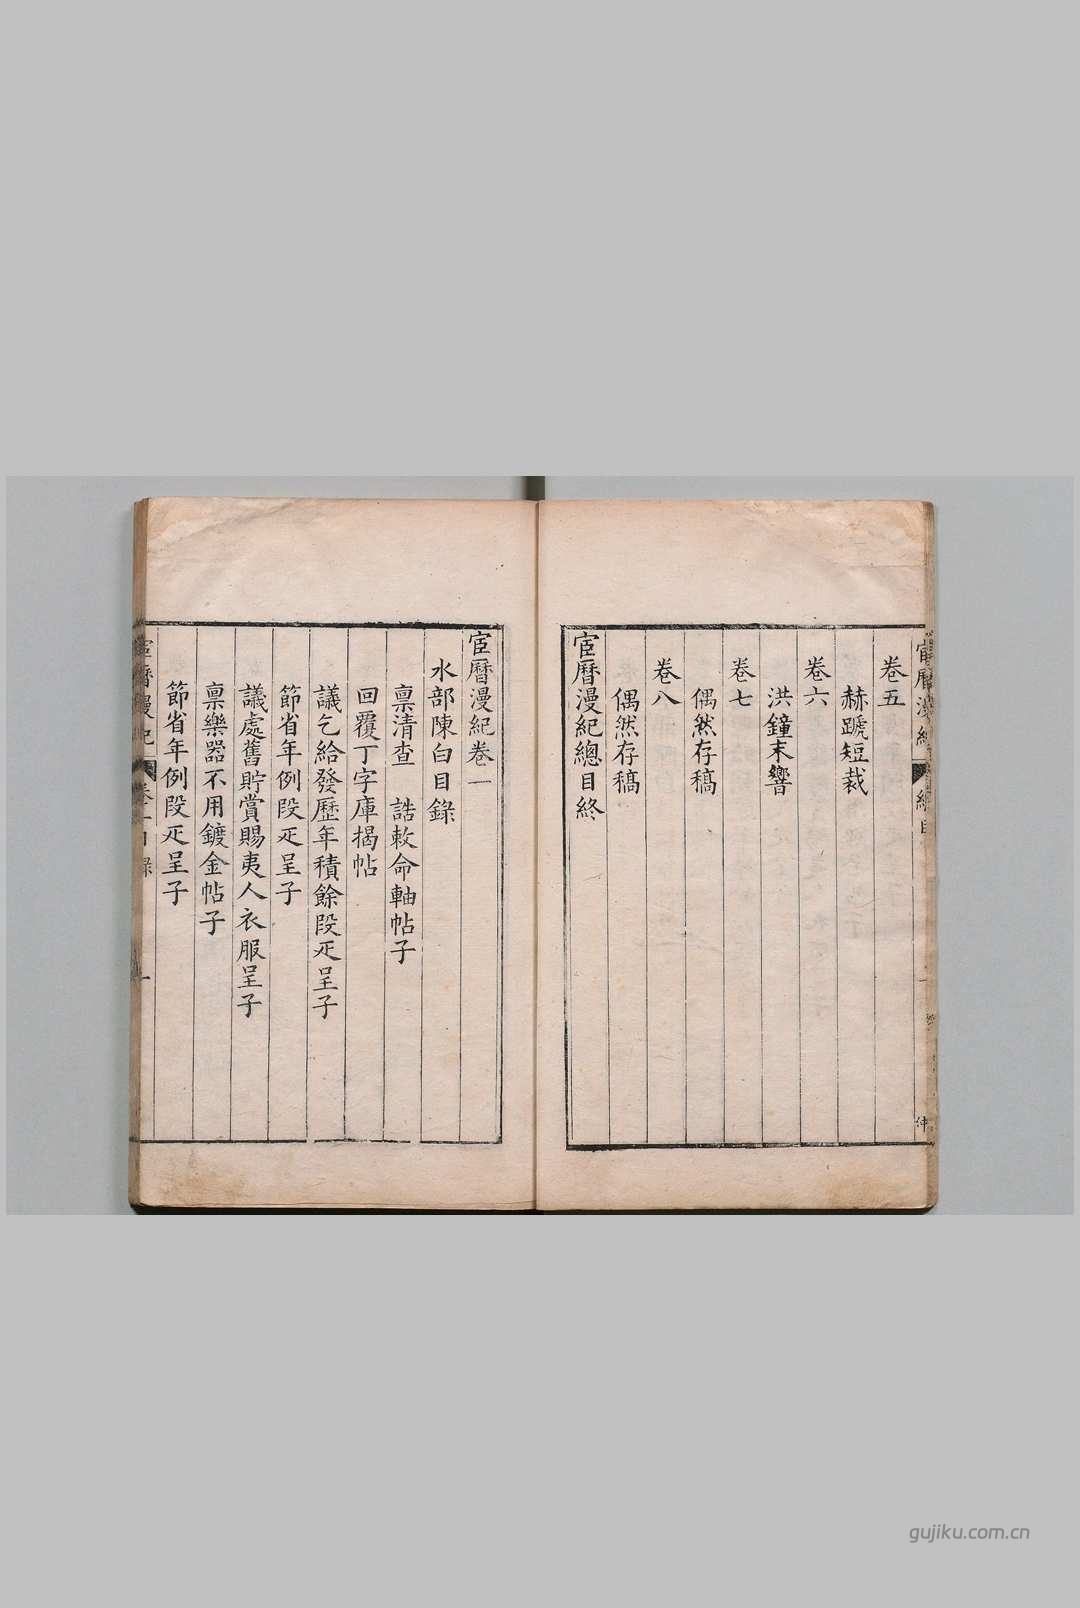 卷五
赫蹏短裁
卷六
洪鐘末響
卷七
偶然存稿
卷八
偶然存稿
宦曆漫紀總目終
宦曆漫紀卷一
水部陳白目錄
禀清查　誥敕命軸帖子
回覆丁字庫揭帖
議乞給發歷年積餘段疋呈子
節省年例段疋呈子
議處舊貯賞賜夷人衣服呈子
禀樂器不用鍍金帖子
節省年例段疋呈子
gujiku.com.cn